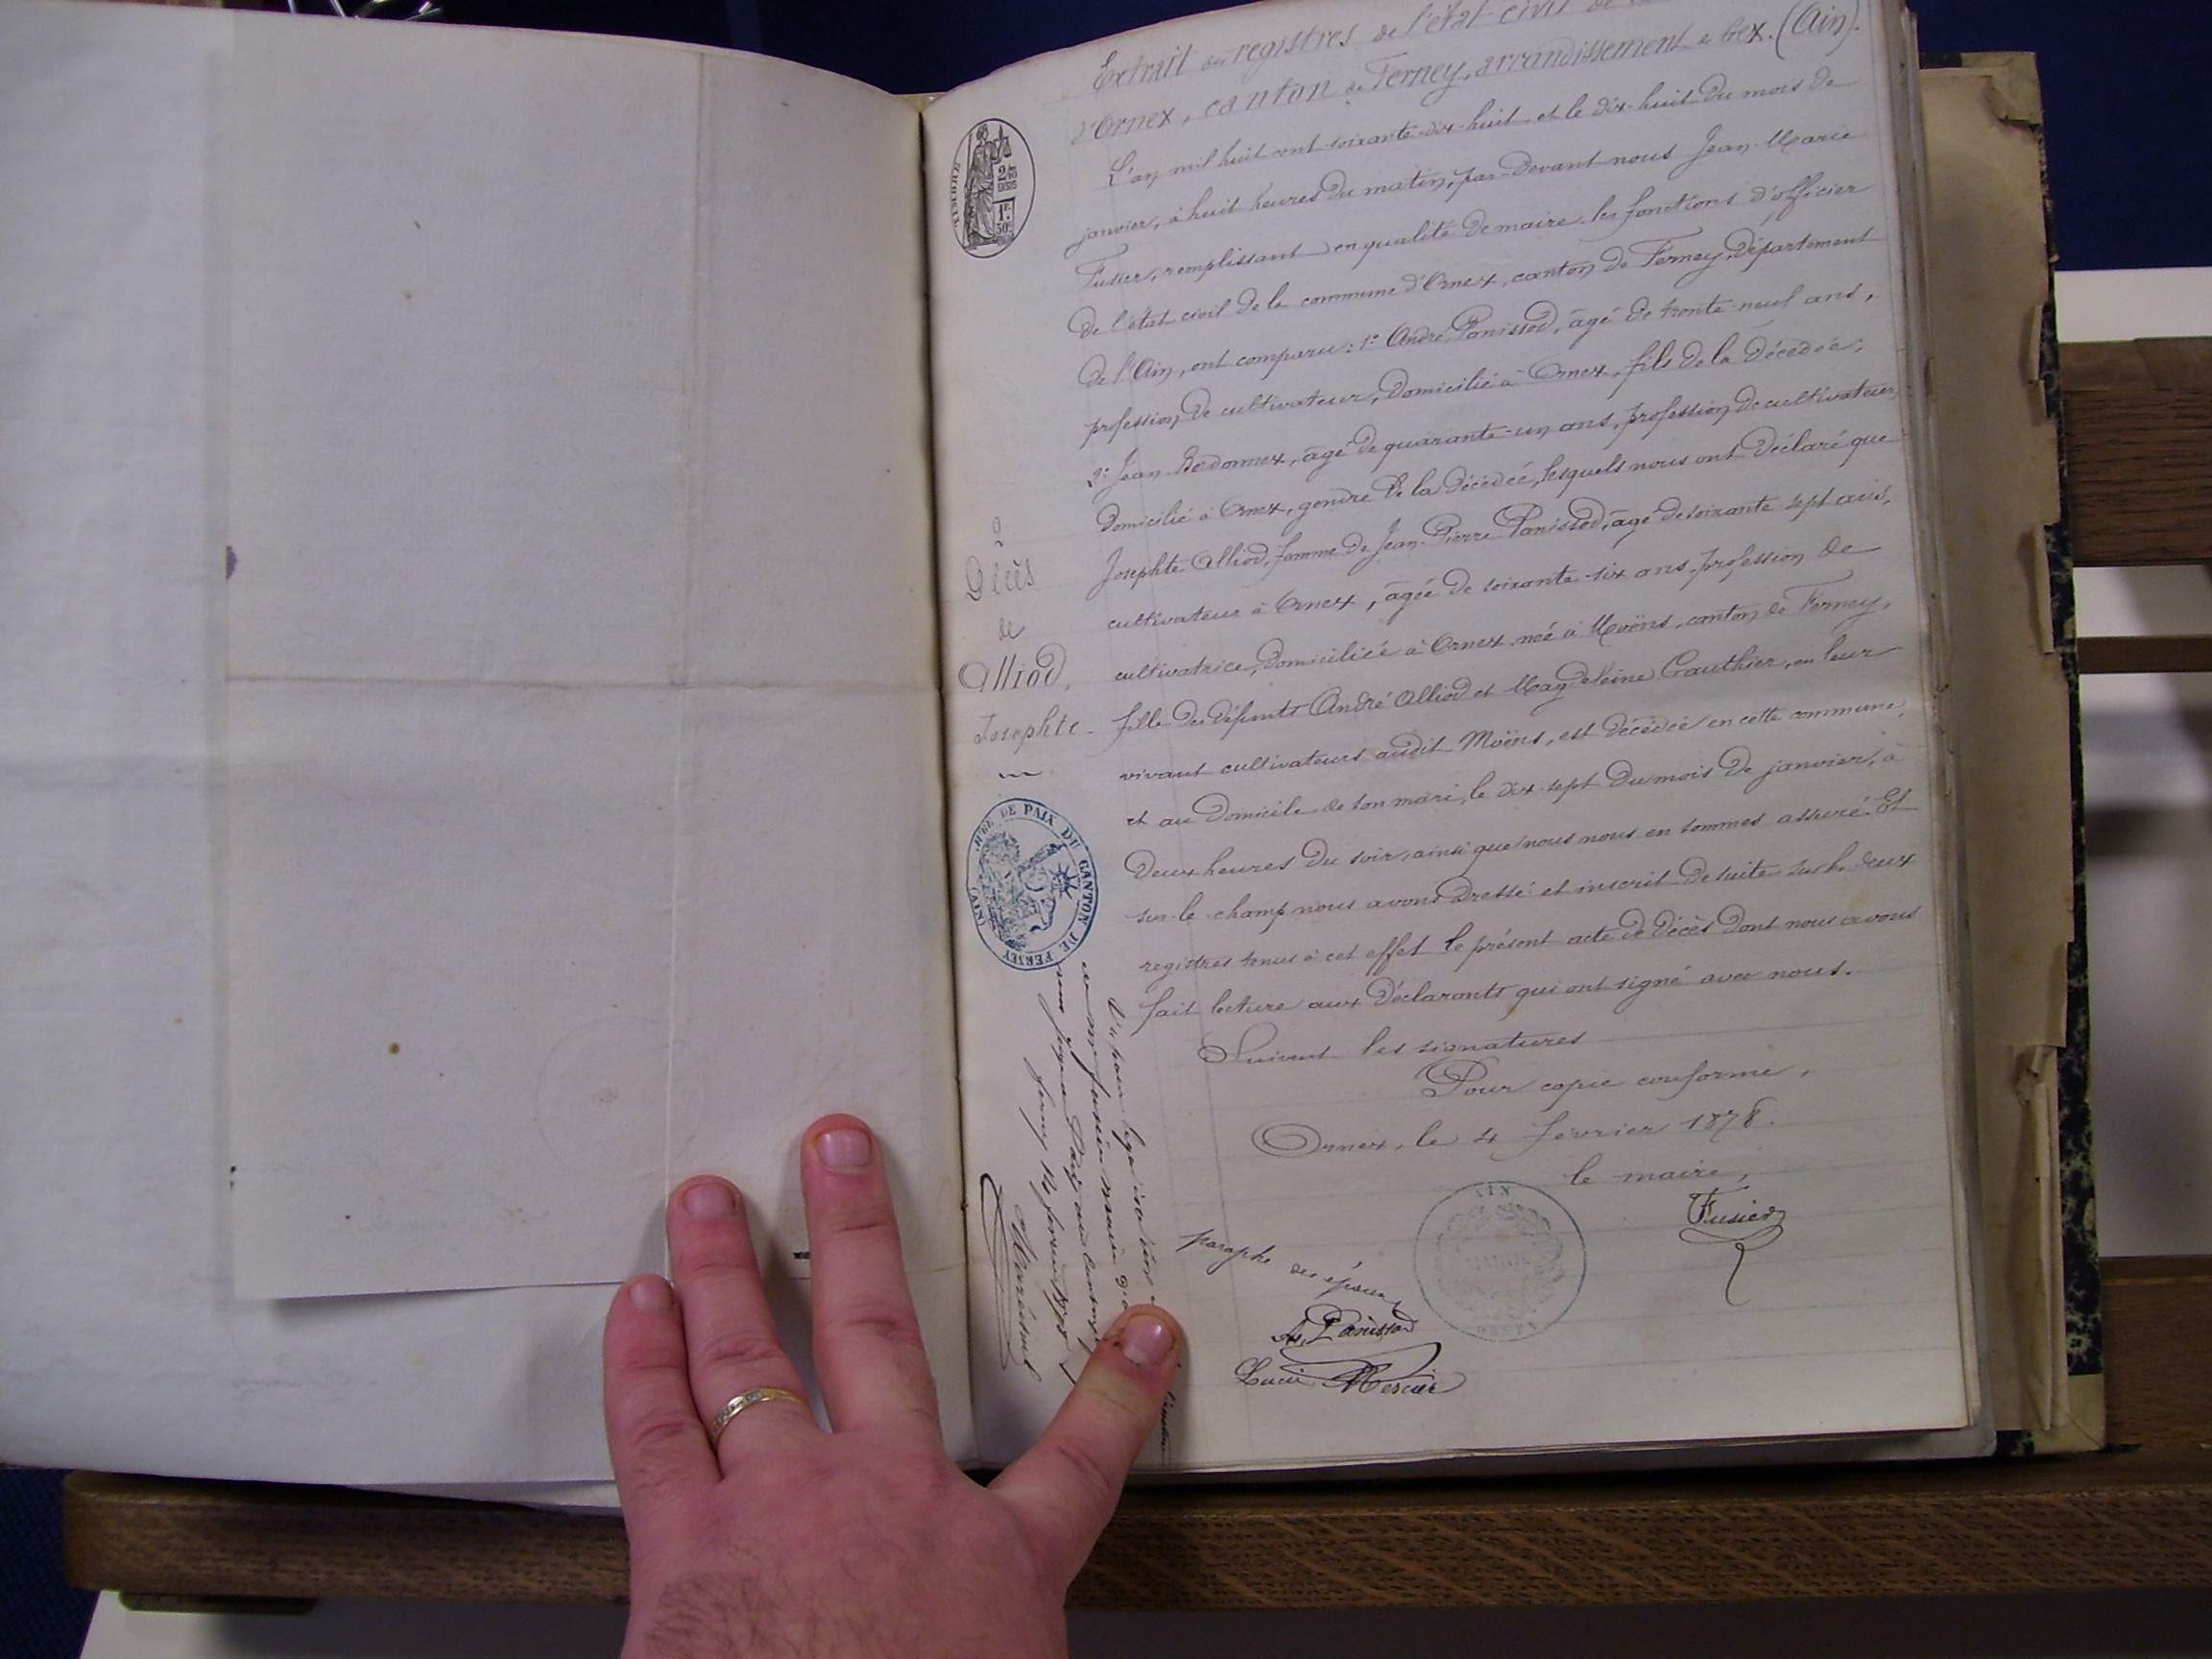 Extrait des registres de l'état civil de la
d'Ornex, canton de Ferney, arrondissement de Gex. (Ain).
L'an mil huit cent soixante-dix-huit et le dix-huit du mois de
janvier, à huit heures du matin, par-devant nous Jean-Marie
Fusier, remplissant en qualité de maire les fonctions d'officier
de l'état civil de la commune d'Ornex, canton de Ferney, département
de l'Ain, ont comparu: 1º André Panissod, âgé de trente-neuf ans,
profession de cultivateur, domicilié à Ornex, fils de la décédée;
2º Jean Bordonnex, âgé de quarante-un ans, profession de cultivateur,
domicilié à Ornex, gendre de la décédée, lesquels nous ont déclaré que
Josephte Alliod, femme de Jean-Pierre Panissod, âgé de soixante-sept ans,
cultivateur à Ornex, âgée de soixante-six ans, profession de
cultivatrice, domiciliée à Ornex, née à Moëns, canton de Ferney,
fille des défunts André Alliod et Magdeleine Gauthier, en leur
vivant cultivateurs audit Moëns, est décédée en cette commune,
et au domicile de son mari, le dix-sept du mois de janvier, à
deux heures du soir, ainsi que nous nous en sommes assuré. Et
sur-le-champ nous avons dressé et inscrit de suite sur les deux
registres tenus à cet effet le présent acte de décès dont nous avons
fait lecture aux déclarants qui ont signé avec nous.
Suivent les signatures
Pour copie conforme,
Ornex, le 4 février 1878.
le maire,
Fusier
paraphe des époux
A. Panissod
Lucie Mercier
TIMBRE
1F.
50c
Décès
de
Alliod,
Josephte
JUGE DE PAIX DU CANTON DE FERNEY
(AIN)
Vu pour légalisation
de M. Fusier maire d'O
nous juge de Paix du canton
Ferney 14 février 1878
Maréchal
AIN
MAIRIE
ORNEX